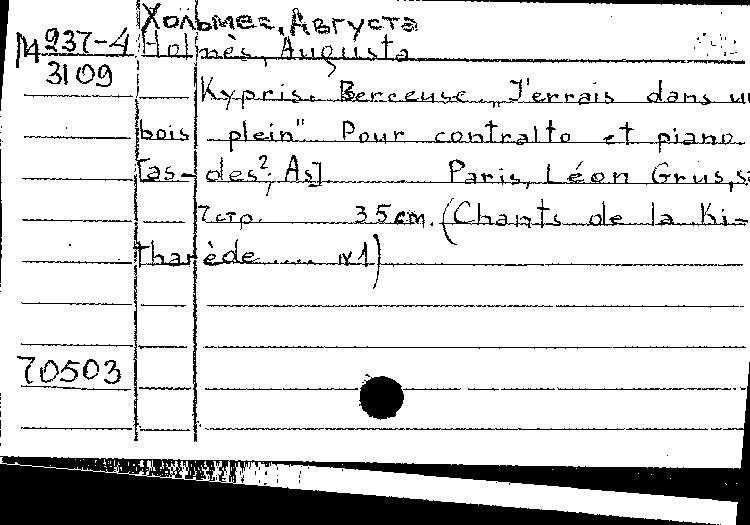 Хольмес, Августа
М 237-4 Holmès, Augusta
3109
Kypris. Berceuse „J'errais dans u
bois plein" Pour contralto et piano.
[as-des²; As] Paris, Léon Grus, s
7 стр. 35 cm. (Chants de la Ki=
tharède .... №1)
70503